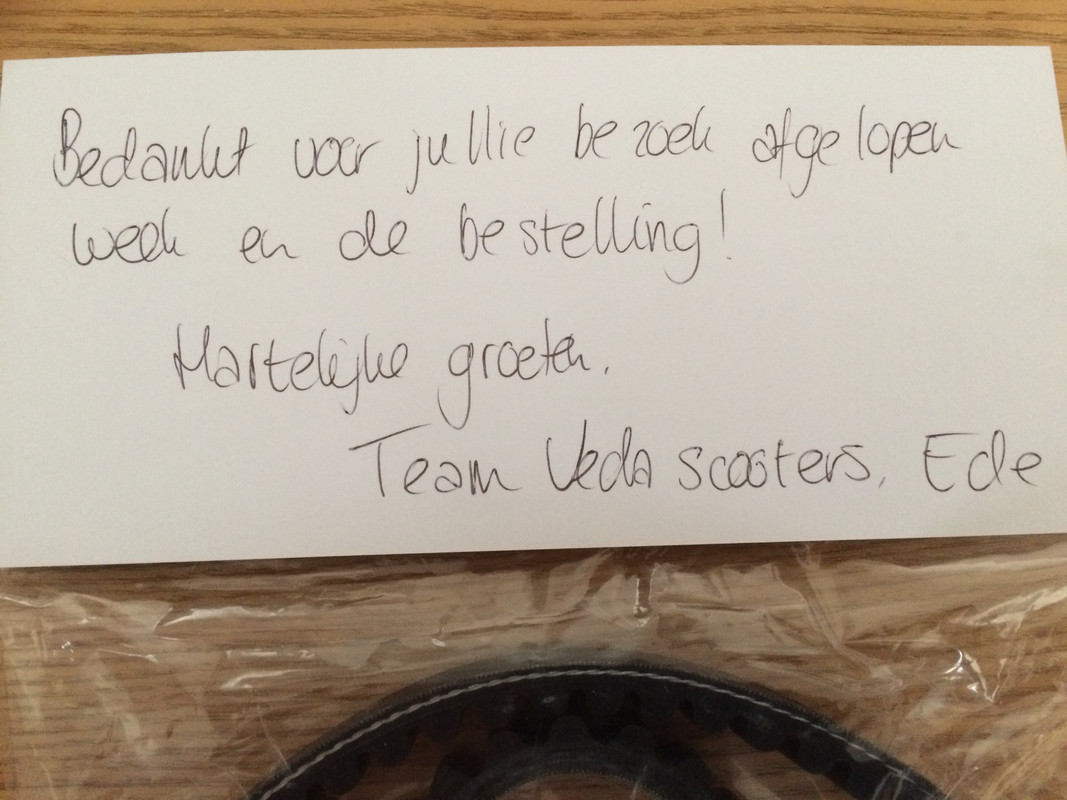 Bedankt voor jullie bezoek afgelopen
week en de bestelling!
Hartelijke groeten,
Team Veda scooters, Ede